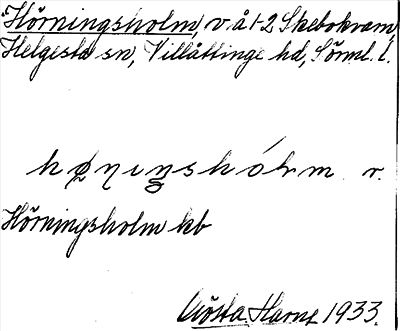 Hörningsholm, v. å 1-2 Skebokvarn,
Helgesta sn, Villåttinge hd, Sörml. l.
hø̨ŋıŋshólm v.
Hörningsholm kb
Gösta Harne 1933.